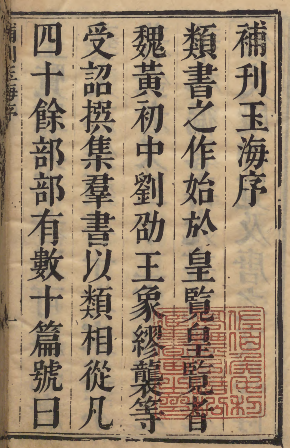 補刊玉海序
類書之作始於皇覽皇覽者
魏黃初中劉劭王象繆襲等
受詔撰集羣書以類相從凡
四十餘部部有數十篇號曰
補刊玉海序